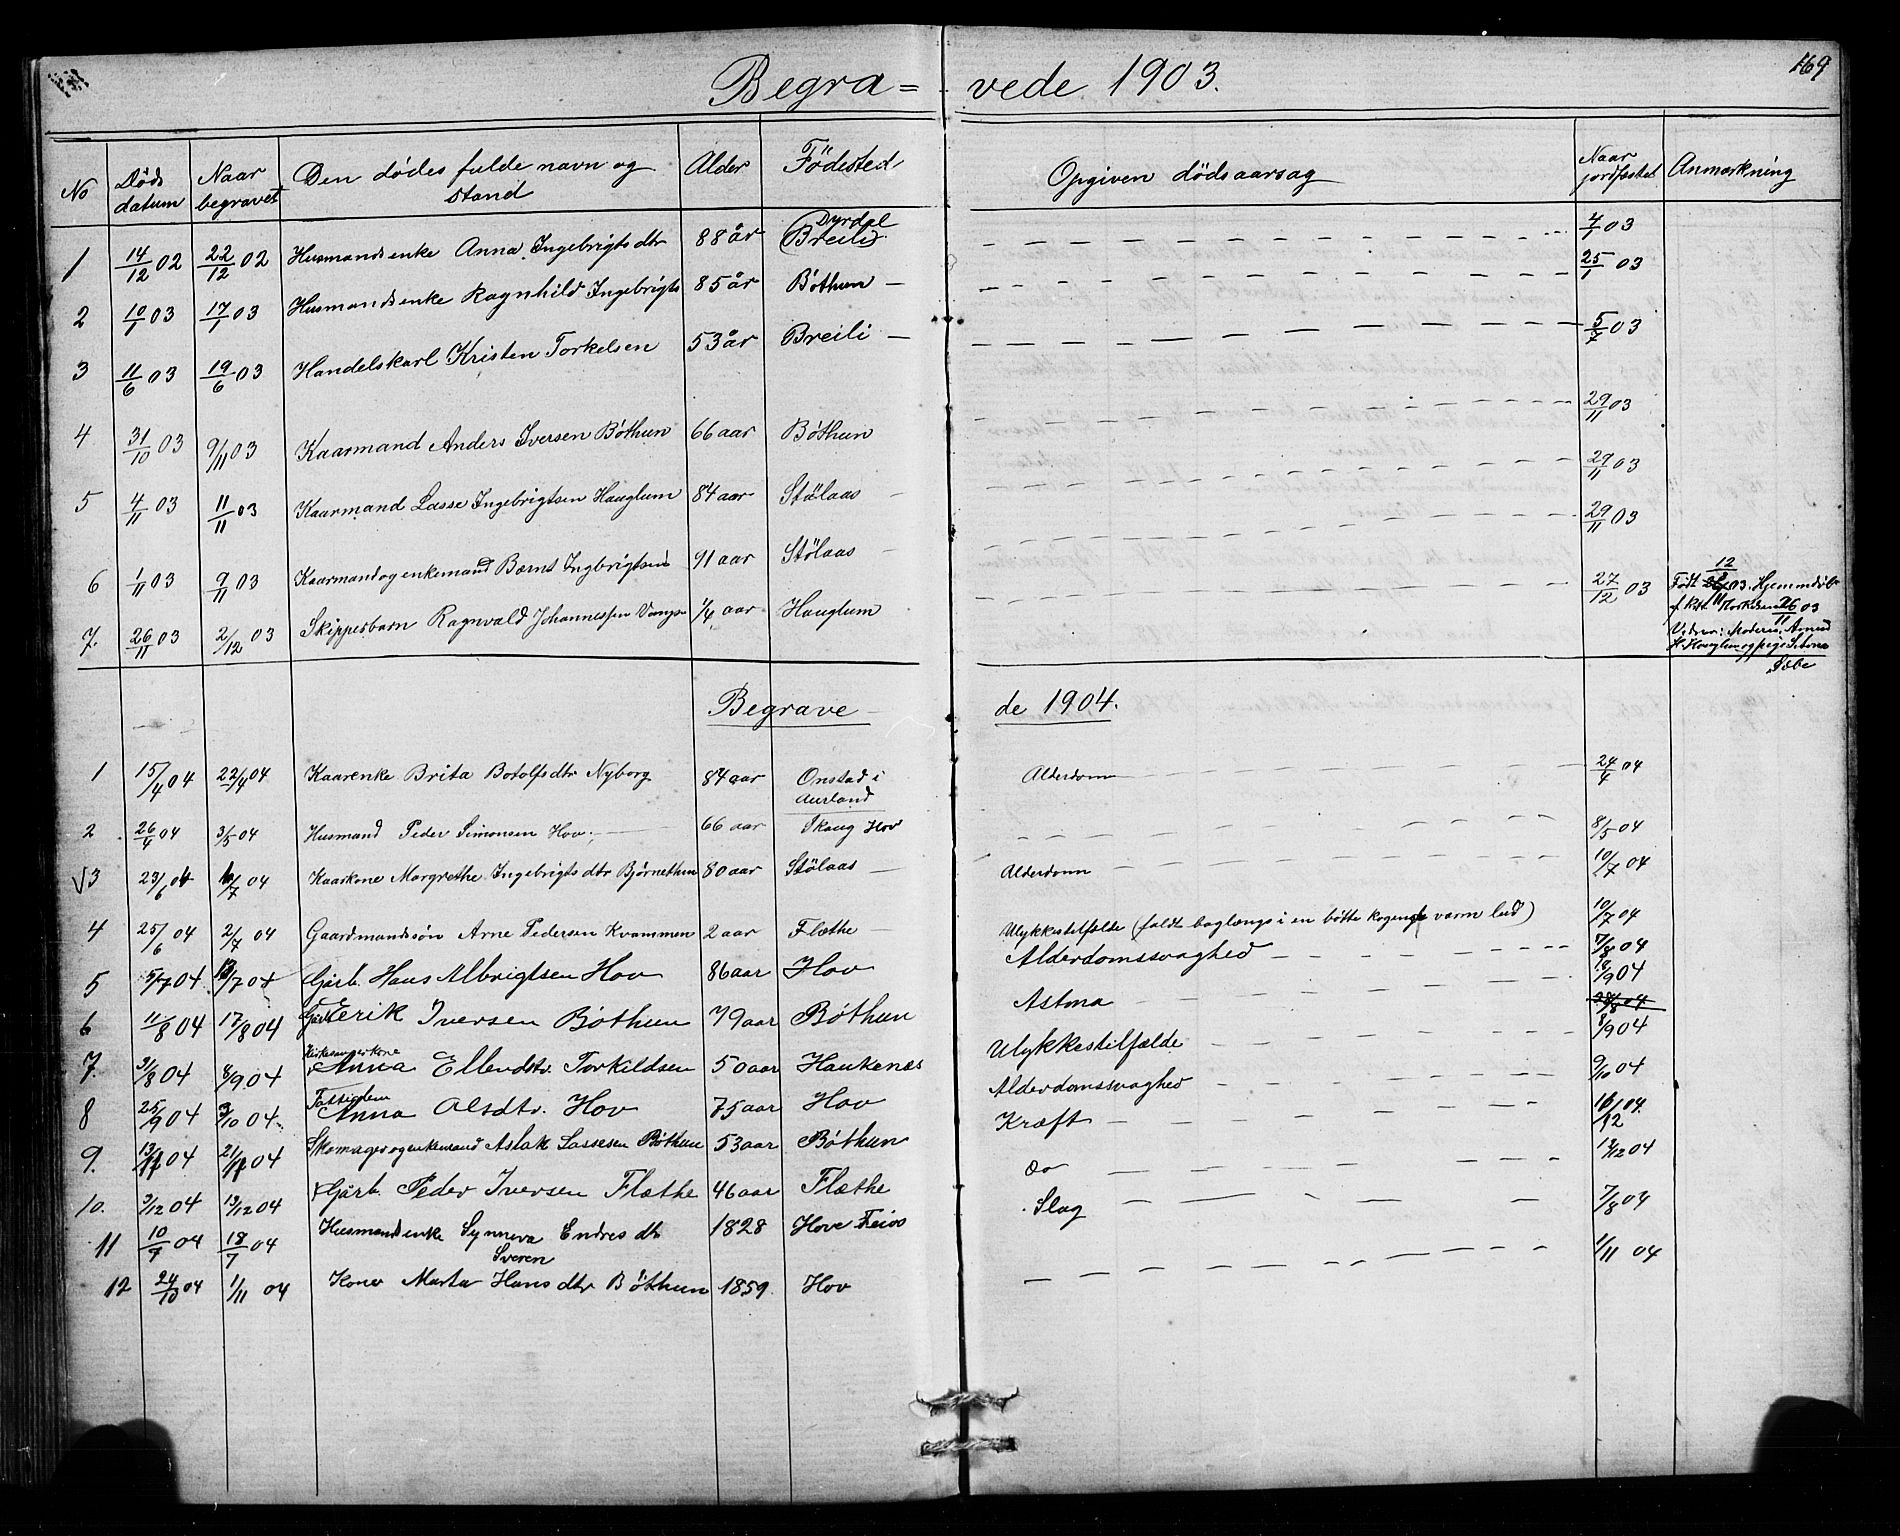 169
Begra= vede 1903.
No | Døds datum | Naar begravet | Den dødes fulde navn og stand | Alder | Födested | Opgiven dödsaarsag | Naar jordfæstet | Anmærkning
1 | 14/12 02 | 22/12 02 | Husmandsenke Anna Ingebrigtsdtr | 88 år | Dyrdal Breili | — | 4/1 03
2 | 10/1 03 | 17/1 03 | Husmandsenke Ragnhild Ingebrigts | 85 år | Bøthun | — | 25/1 03
3 | 11/6 03 | 19/6 03 | Handelskarl Kristen Torkelsen | 53 år | Breili | — | 5/7 03
4 | 31/10 03 | 9/11 03 | Kaarmand Anders Iversen Bøthun | 66 aar | Bøthun | — | 29/11 03
5 | 4/11 03 | 11/11 03 | Kaarmand Lasse Ingebrigtsen Hauglum | 84 aar | Stölaas | — | 29/11 03
6 | 1/11 03 | 9/11 03 | Kaarmand og enkemand Bernt Ingbrigtsen | 91 aar | Stölaas | — | 29/11 03
7. | 26/11 03 | 2/12 03 | Skippesbarn Ragnvald Johannessen Vangs | 1/4 aar | Hauglum | — | 27/12 03 | Født 12/8 03. Hjemmdøbt
26/11 03
Vidner: Moderen,
Hauglum og pige
Sæbe
Begrave de 1904.
1 | 15/4 04 | 22/4 04 | Kaarenke Brita Botolfsdtr Nyborg | 84 aar | Onstad i Aurland | Alderdom | 24/4 04
2 | 26/4 04 | 3/5 04 | Husmand Peder Simonsen Hov. | 66 aar | Skaug Hov | — | 8/5 04
√3 | 23/6 04 | /7 04 | Kaarkone Margrethe Ingebrigtsdtr Bjørnethun | 80 aar | Stölaas | Alderdom | 10/7 04
4 | 25/6 04 | 2/7 04 | Gaardmandssön Arne Pedersen Kvammen | 2 aar | Flæthe | Ulykkestilfælde (faldt baglængs i en bøtte kogende varm lud) | 10/7 04
5 | 5/7 04 | 13/7 04 | Gårb. Hans Albrigtsen Hov | 86 aar | Hov | Alderdomssvaghed | 7/8 04
6 | 11/8 04 | 17/8 04 | Erik Iversen Bøthun | 79 aar | Bøthun | Astma | 18/9 04
28/8 04
7. | 31/8 04 | 8/9 04 | Kirkesangerkone Anna Ellendsdtr. Torkildsen | 50 aar | Haukenæs | Ulykkestilfælde | 8/9 04
8 | 25/9 04 | 3/10 04 | Fattiglem Anna Olsdtr. Hov | 75 aar | Hov | Alderdomssvaghed | 9/10 04
9. | 13/11 04 | 21/11 04 | Skomager og enkemand Aslak Lassesen Bøthun | 53 aar | Bøthun | Kræft | /12 04
10. | 3/12 04 | 13/12 04 | Gårb. Peder Iversen Flæthe | 46 aar | Flæthe | do | 13/12 04
11 | 10/7 04 | 18/7 04 | Husmandsenke Synneva Endresdtr Sveren | 1828 | Hove Feios | Slag | 7/8 04
12 | 24/10 04 | 1/11 04 | Kone Marta Hansdtr Bøthun | 1859. | Hov | — | 1/11 04